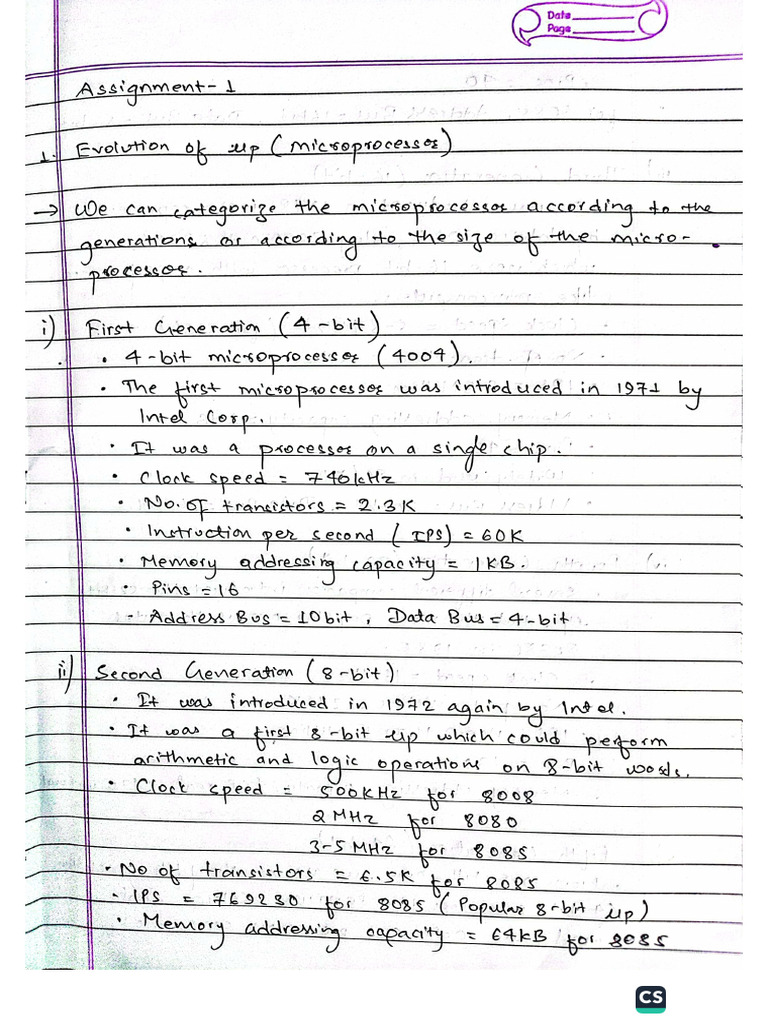 Date
Page
Assignment-1
1. Evolution of μp (Microprocessor)
→ We can categorize the microprocessor according to the
generations or according to the size of the micro-
processor.
i) First Generation (4-bit)
• 4-bit microprocessor (4004).
• The first microprocessor was introduced in 1971 by
Intel Corp.
• It was a processor on a single chip.
• Clock speed = 740kHz
• No. of transistors = 2.3K
• Instruction per second (IPS) = 60K
• Memory addressing capacity = 1KB.
• Pins = 16
- Address Bus = 10bit, Data Bus = 4-bit.
ii) Second Generation (8-bit)
• It was introduced in 1972 again by Intel.
• It was a first 8-bit μp which could perform
arithmetic and logic operations on 8-bit words.
• Clock speed = 500KHz for 8008
2 MHz for 8080
3-5 MHz for 8085
• No of transistors = 6.5K for 8085
• IPS = 769230 for 8085 (Popular 8-bit μp)
• Memory addressing capacity = 64kB for 8085
CS